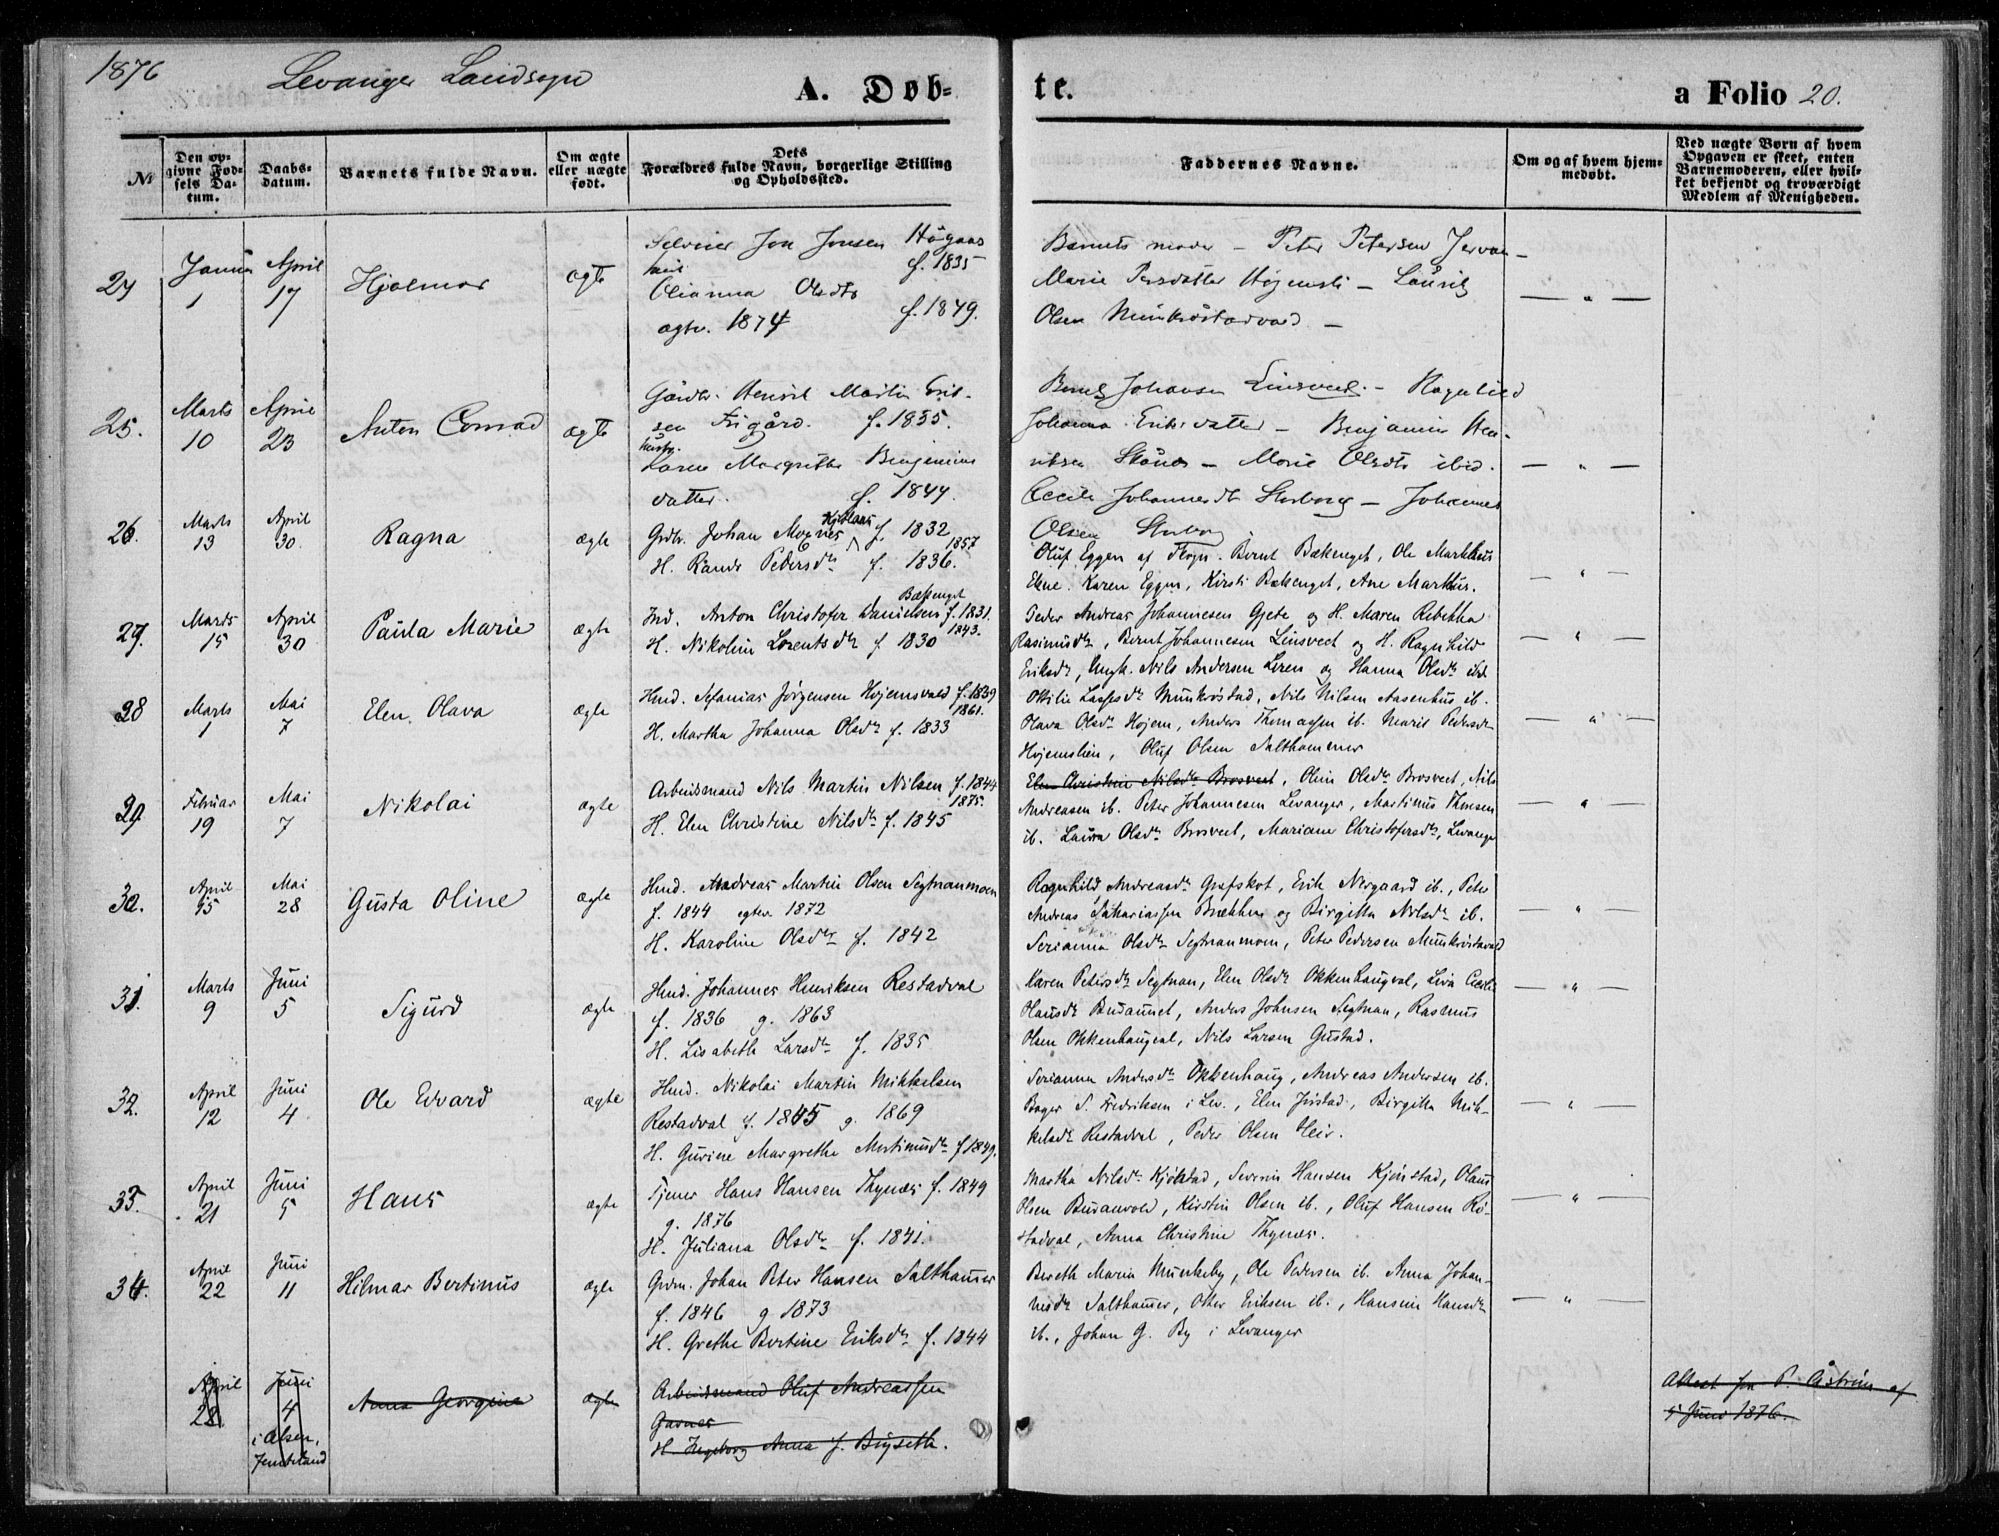 1876 Levanger Landsogn
A. Døbte. a Folio 20.
No
Den opgivne Fødsels Datum.
Daabsdatum.
Barnets fulde Navn.
Om ægte eller nægte født.
Dets Forældres fulde Navn, borgerlige Stilling og Opholdssted.
Faddernes Navne.
Om og af hvem hjemmedøbt.
Ved nægte Børn af hvem Opgaven er skeet, enten Barnemoderen, eller hvilket bekjendt og troværdigt Medlem af Menigheden.
24 Januar 1 April 17 Hjalmar ægte
Jon Jonsen
f. 1835
Olianna Olsdtr
ægtev. 1874 f. 1849.
Barnets moder – Peter Petersen
Marie Persdatter –
Olsen –
— " —
25. Marts 10 April 23 Anton Conrad ægte
Gårdbr. Henrik Martin Erik-
sen f. 1835.
Hustr. Margrethe Benjamins
datter. f. 1844.
Bernt Johansen Linsveet – Ragnhild
Johanna Eriksdatter – Benjamin Hen-
riksen – Marie Olsdtr ibid.
Cecile Johannesdtr Storborg – Johannes
Olsen Storborg
— " —
26. Marts 13 April 30. Ragna ægte
Grdbr. Johan f. 1832
1857
H. Pedersdtr f. 1836.
Oluf Eggen af Skogn. Bernt Bækenget, Ole Markhus
Eggen, Kirsti Bækenget, Ane Markhus.
— " —
27. Marts 15 April 30 Paula Marie ægte
Bækenget
Ind. Anton Christofer Danielsen f. 1831.
1843.
H. Nikoline Lorentsdtr f. 1830
Peder Andreas Johannesen Gjete og H. Maren Rebekka
Rasmusdtr, Bernt Johannesen Linsveet og H. Ragnhild
Eriksdtr, Ungk. Nils Andersen Leren og Hanna Olsdtr ibd.
— " —
28 Marts 1 Mai 7 Elen Olava ægte
Hmd. Mathias Jørgensen Højemsvald f. 1839
1861.
H. Martha Johanna Olsdtr f. 1833
Otilie Munkrøstad, Nils Nilsen Aasenhus ib.
Olava Olsdtr Højem, Anders Thomassen ib. Marit Pedersdtr
Højemslien, Oluf Olsen Salthammer
— " —
29. Februar 19 Mai 7 Nikolai ægte
Arbeidsmand Nils Martin Nilsen f. 1844
1875.
H. Elen Christine Nilsdtr f. 1845
Elen Christine Nilsdtr Brosveet, Oline Olsdtr Brosveet, Nils
Andreasen ib. Peter Johannesen Levanger, Martinus
ib. Laura Olsdtr Brosveet, Mariane Christofersdtr, Levanger
— " —
30. April 15 Mai 28 Gusta Oline ægte
Hmd. Andreas Martin Olsen Segtnanmoen
f. 1844 egtev. 1872
H. Karoline Olsdtr f. 1842
Ragnhild Andreasdtr Grefskot, Erik Nergaard ib., Peter
Andreas Sakariassen Brækken og Birgitta Nilsdtr ib.
Serianna Olsdtr Segtnanmoen, Peter Pedersen Munkrøstadval
— " —
31. Marts 9 Juni 5 Sigurd ægte
Hmd. Johannes Henriksen Restadval
f. 1836 g. 1863
H. Lisabeth Larsdtr f. 1835
Karen Petersdtr Segtnan, Elen Olsdtr Okkenhaugval,
Anders Johnsen Segtnan, Rasmus
Olsen Okkenhaugval, Nils Larsen Gustad.
— " —
32. April 12 Juni 4 Ole Edvard ægte
Hmd. Nikolai Martin Mikkelsen
Restadval f. 1845 g. 1869
H. Gurine Margrethe Martinusdtr f 1849.
Serianna Andersdtr Okkenhaug, Andreas Andersen ib.
Bager S. Fredriksen i Lev., Elen Birgitta Mik-
kelsdtr Restadval, Peder Olsen Heir.
— " —
33. April 21 Juni 5 Hans ægte
Tjener Hans Hansen Thynæs f. 1849
g. 1876
H. Juliana Olsdtr f. 1841.
Martha Nilsdtr Kjølstad, Severin Hansen Kjønstad, Olaus
Olsen Buranvold, Kirstin Olsen ib., Oluf Hansen Rø-
stadval, Anna Christine Thynæs.
— " —
34. April 22 Juni 11 Hilmar Bertinus ægte
Grdm. Johan Peter Hansen Salthamer
f. 1846 g 1873
H. Grethe Bertine Eriksdtr f. 1844
Bereth Maria Munkeby, Ole Pedersen ib. Anna Johan-
nesdtr Salthamer, Otter Eriksen ib., Hansine Hansdtr
ib., Johan G. By i Levanger
— " —
April 28. Juni 4 i Alsen, Jemteland Anna Georgine ægte
Arbeidsmand Oluf Andreassen
H. Ingeborg Anna f. Bugseth.
Attest fra P. Åström af
5 Juni 1876.